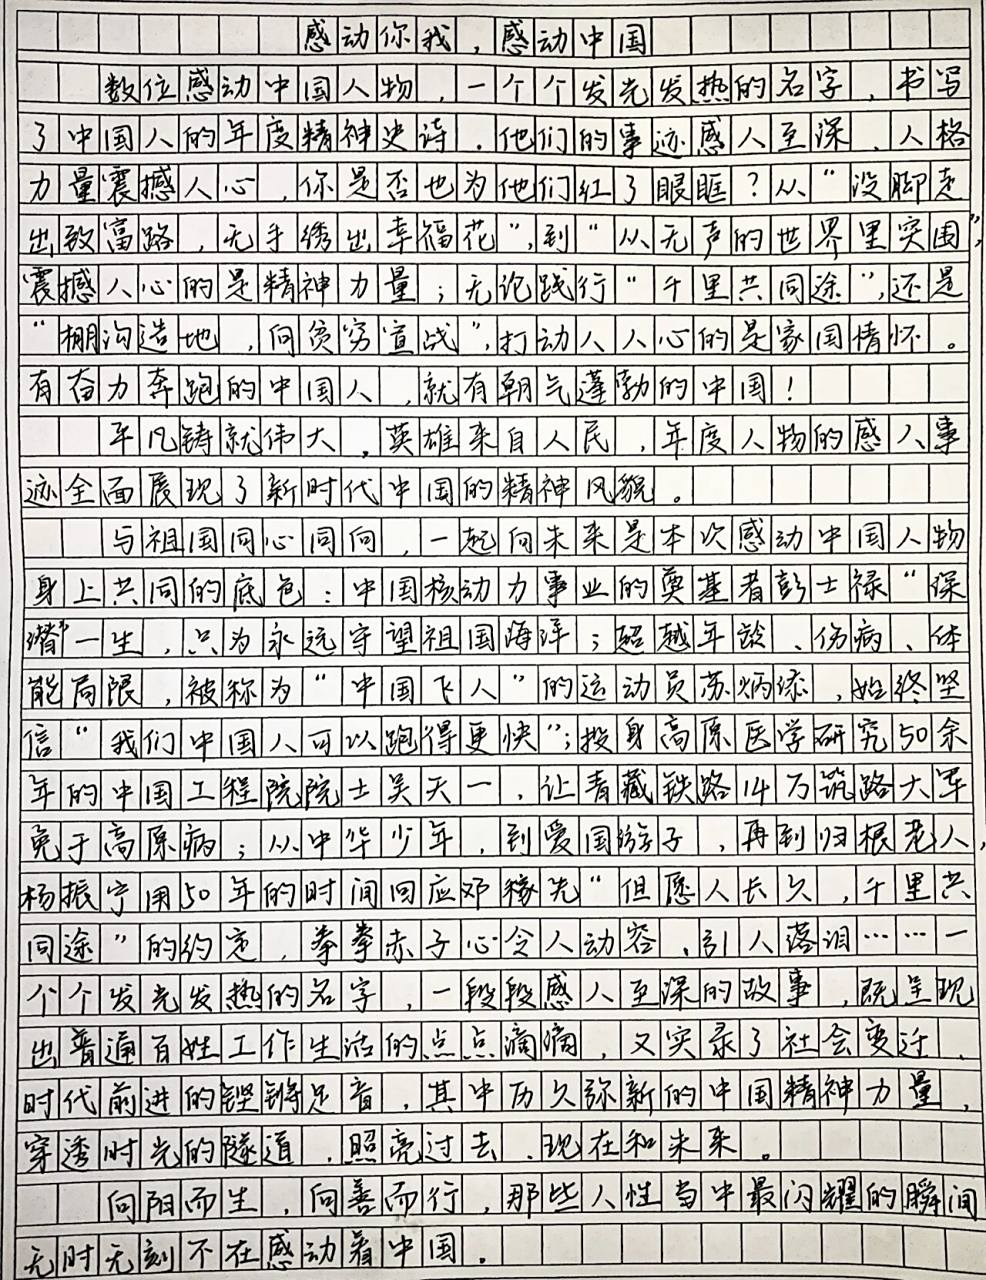 感动你我，感动中国
数位感动中国人物，一个个发光发热的名字，书写
了中国人的年度精神史诗。他们的事迹感人至深、人格
力量震撼人心，你是否也为他们红了眼眶？从“没脚走
出致富路，无手绣出幸福花”，到“从无声的世界里突围”，
震撼人心的是精神力量；无论践行“千里共同途”，还是
“棚沟造地，向贫穷宣战”，打动人人心的是家国情怀。
有奋力奔跑的中国人，就有朝气蓬勃的中国！
平凡铸就伟大，英雄来自人民，年度人物的感人事
迹全面展现了新时代中国的精神风貌。
与祖国同心同向，一起向未来是本次感动中国人物
身上共同的底色：中国核动力事业的奠基者彭士禄“深
潜”一生，只为永远守望祖国海洋；超越年龄、伤病、体
能局限，被称为“中国飞人”的运动员苏炳添，始终坚
信“我们中国人可以跑得更快”；投身高原医学研究50余
年的中国工程院院士吴天一，让青藏铁路14万筑路大军
免于高原病；从中华少年，到爱国游子，再到归根老人，
杨振宁用50年的时间回应邓稼先“但愿人长久，千里共
同途”的约定，拳拳赤子心令人动容、引人落泪……一
个个发光发热的名字，一段段感人至深的故事，既呈现
出普通百姓工作生活的点点滴滴，又实录了社会变迁、
时代前进的铿锵足音，其中历久弥新的中国精神力量，
穿透时光的隧道，照亮过去、现在和未来。
向阳而生，向善而行，那些人性当中最闪耀的瞬间
无时无刻不在感动着中国。